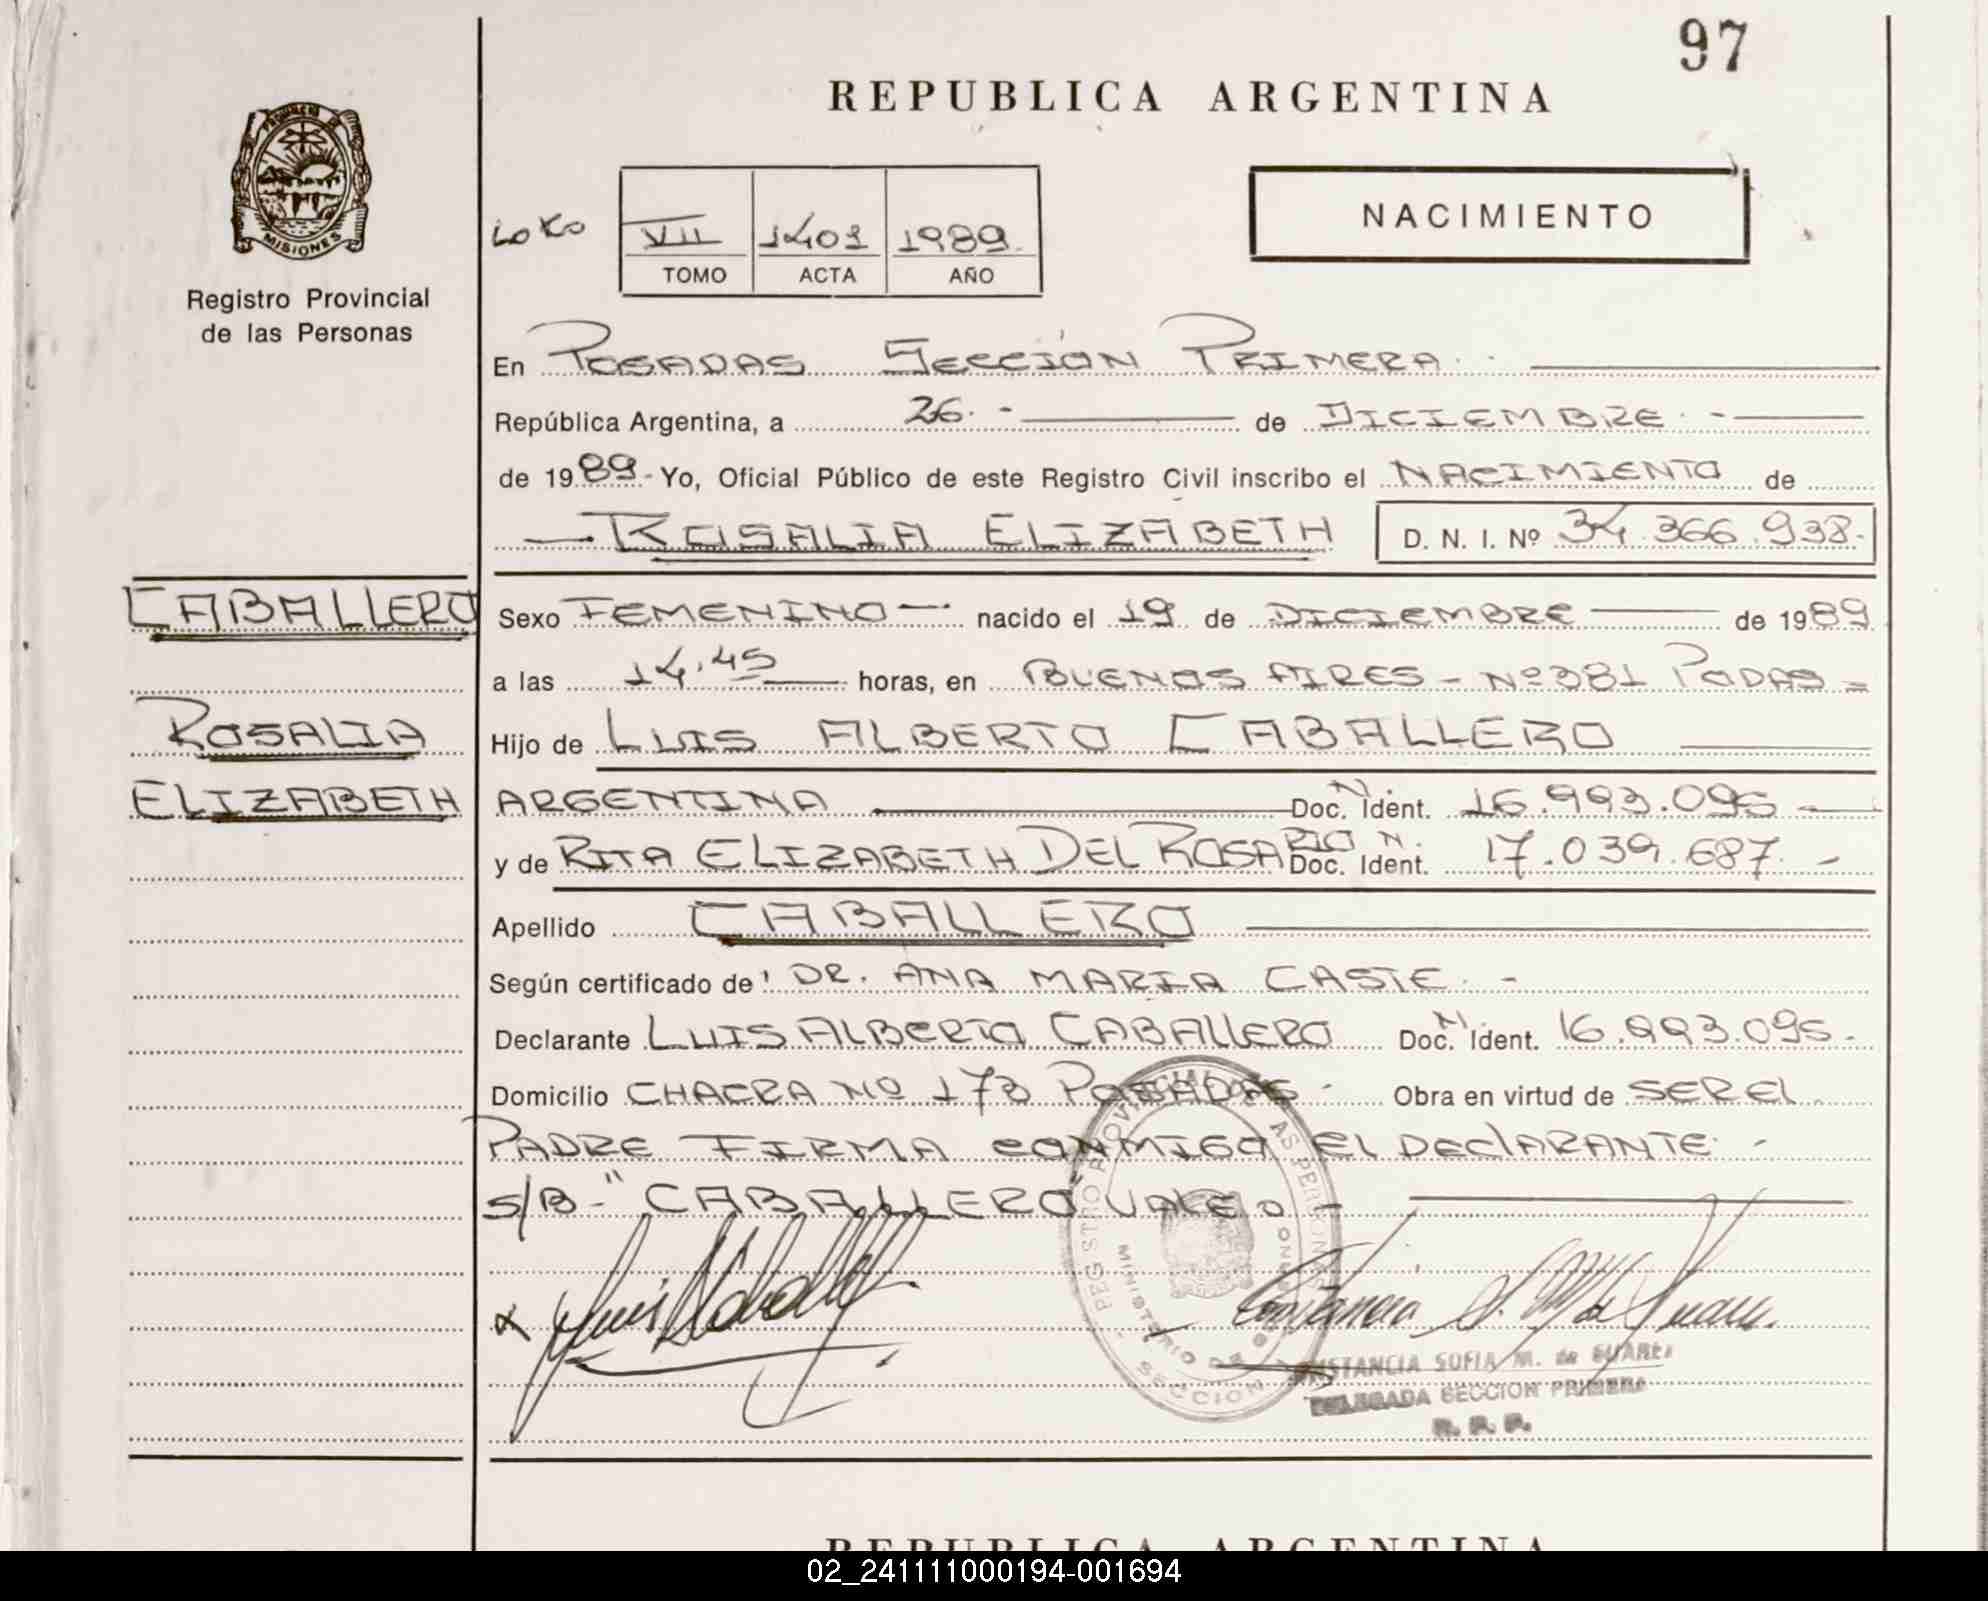 97
REPUBLICA ARGENTINA
PROVINCIA DE
MISIONES
Registro Provincial
de las Personas
VII 1401 1989
TOMO ACTA AÑO
NACIMIENTO
En POSADAS SECCIÓN PRIMERA
República Argentina, a 26.- de DICIEMBRE.-
de 1989.- Yo, Oficial Público de este Registro Civil inscribo el NACIMIENTO de
— ROSALIA ELIZABETH D. N. I. Nº 34.366.938.-
CABALLERO
ROSALIA
ELIZABETH
Sexo FEMENINO — nacido el 19 de DICIEMBRE de 1989
a las 14.45 horas, en BUENOS AIRES - Nº 381 PODAS =
Hijo de LUIS ALBERTO CABALLERO
ARGENTINA Doc. N. Ident. 16.993.095 -
y de RITA ELIZABETH DEL ROSARIO Doc. N. Ident. 17.039.687.-
Apellido CABALLERO
Según certificado de DR. ANA MARIA CASTE.-
Declarante LUIS ALBERTO CABALLERO Doc. N. Ident. 16.993.095.-
Domicilio CHACRA Nº 173 POSADAS.- Obra en virtud de SER EL
PADRE FIRMA CONMIGO EL DECLARANTE.-
S/B-"CABALLERO" VALE
REGISTRO PROVINCIAL DE LAS PERSONAS
MINISTERIO DE GOBIERNO
SECCION
CONSTANCIA SOFIA M. de SUAREZ
DELEGADA SECCION PRIMERA
R. P. P.
REPUBLICA ARGENTINA
02_241111000194-001694